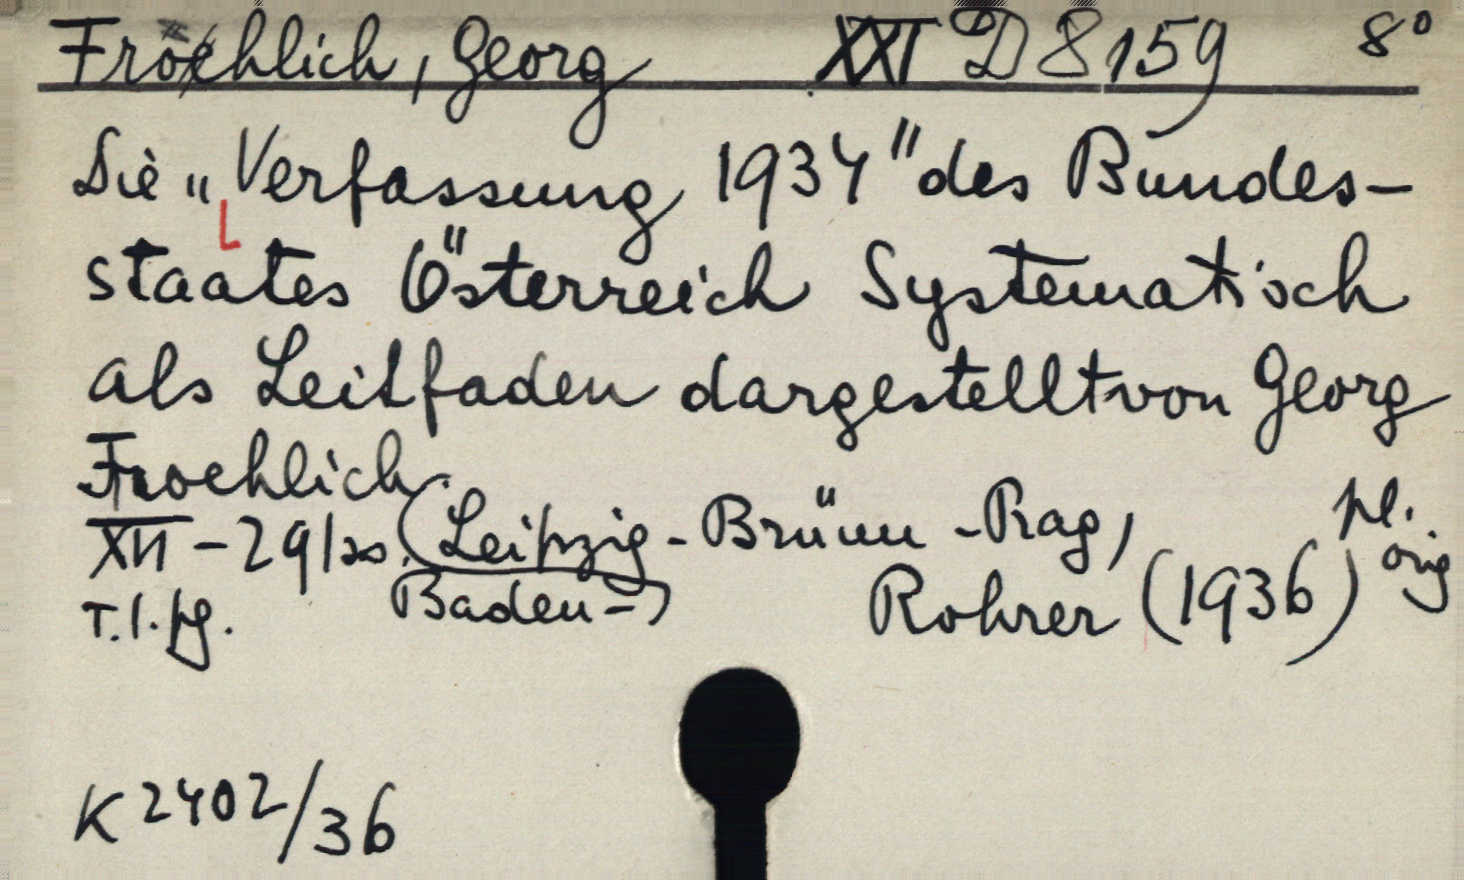 Froehlich, Georg XXI D 8159 8°
Die „Verfassung 1934" des Bundes-
staates Österreich Systematisch
als Leitfaden dargestellt von Georg
Froehlich.
XII - 291 ss. (Leipzig - Brünn - Prag, pl.
Baden-) Rohrer (1936) orig
T. l. pg.
K 2402/36